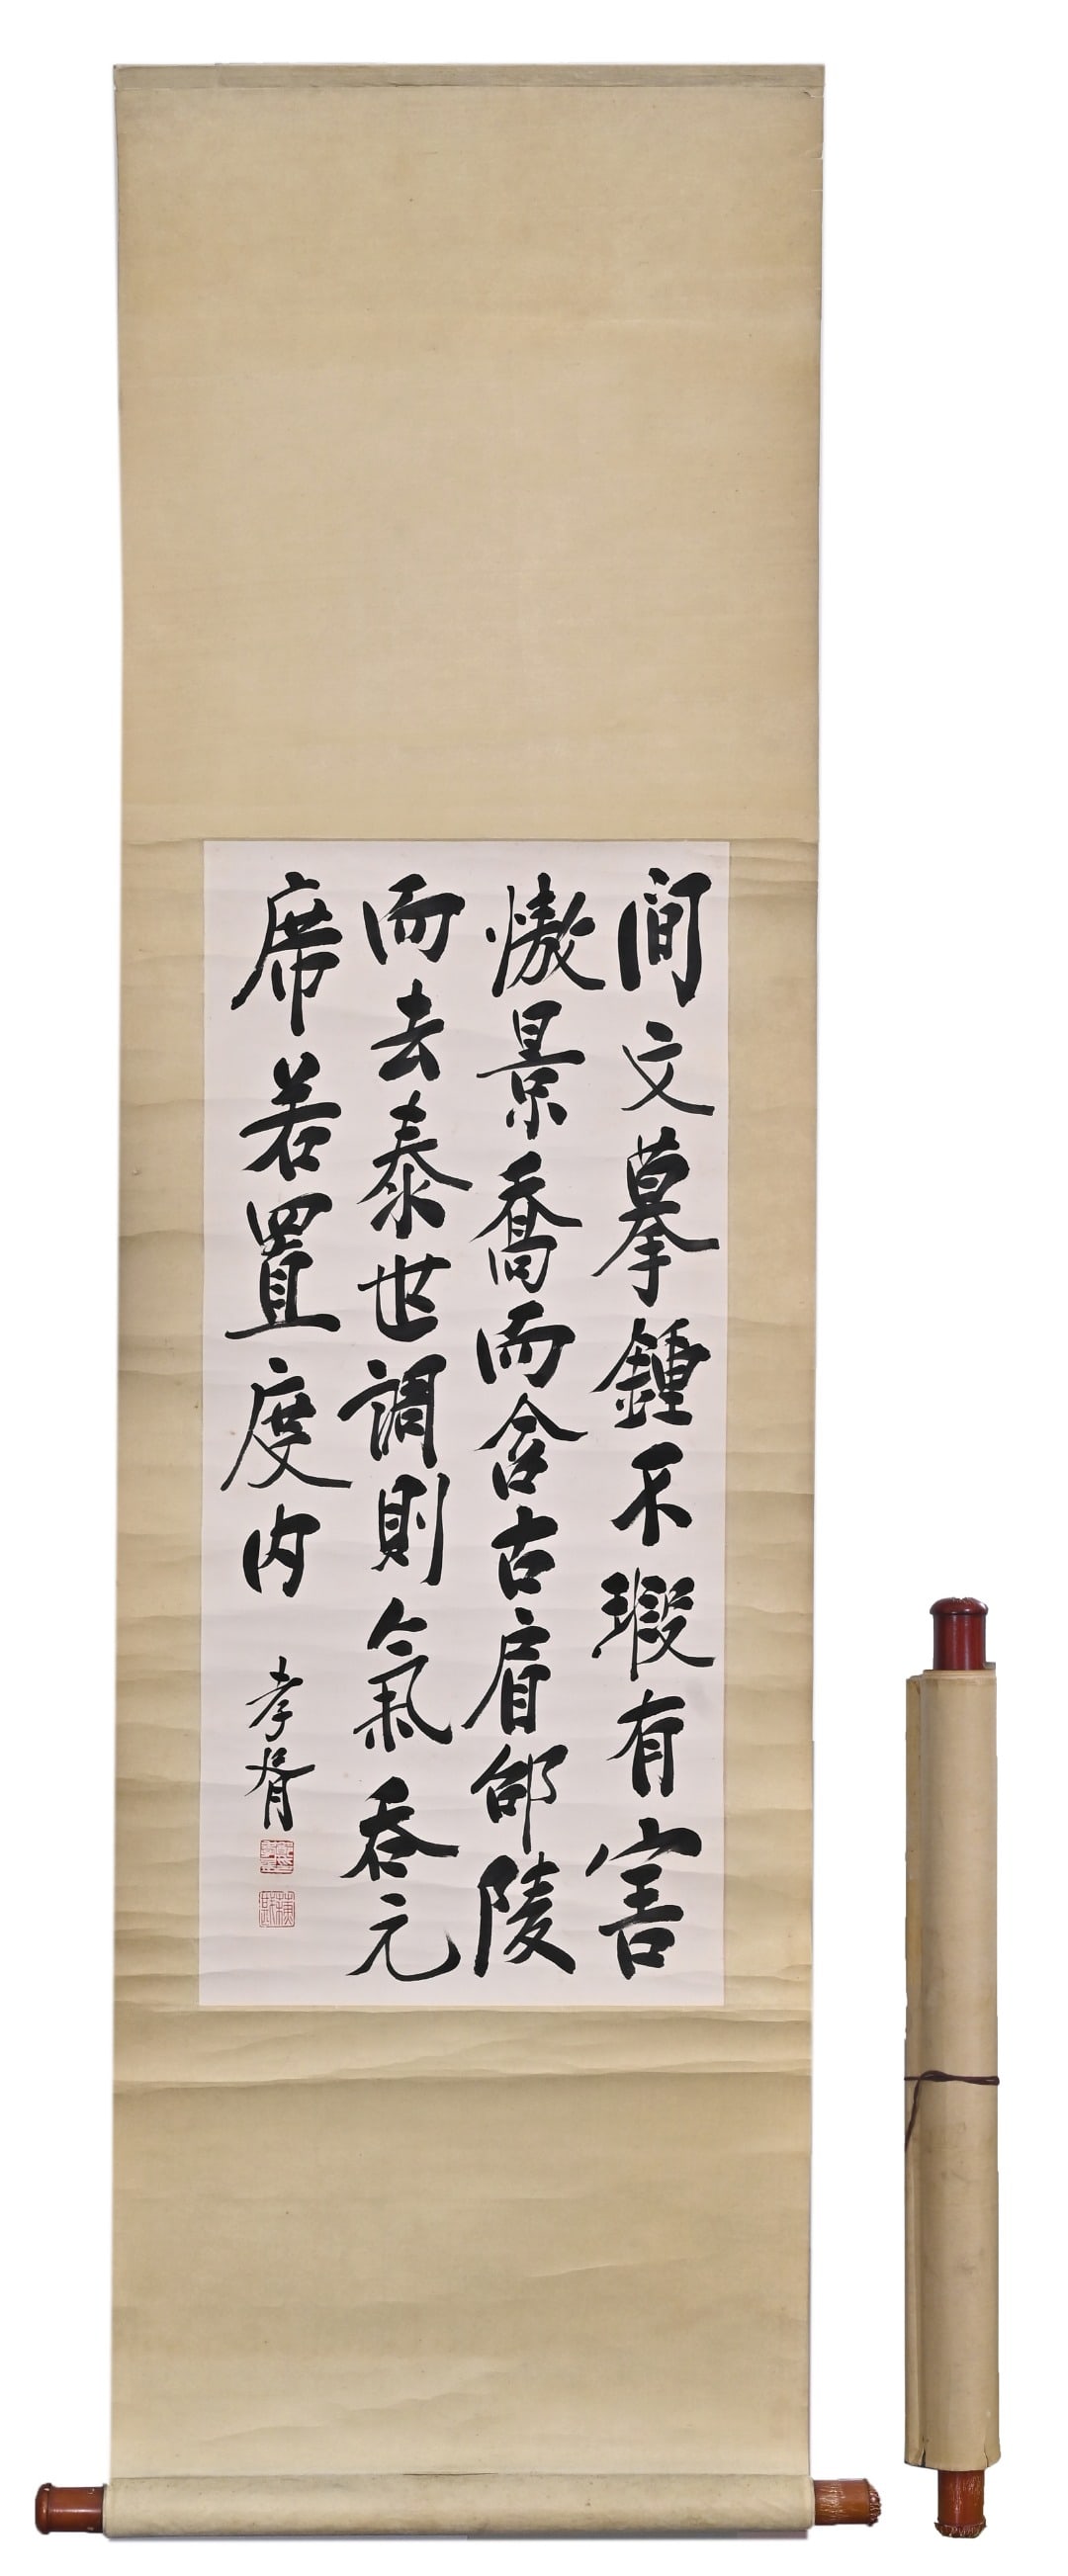 間文摹鍾不瑕有害
傲景喬而含古眉郃陵
而去泰世調則氣吞元
席若置度内
孝胥